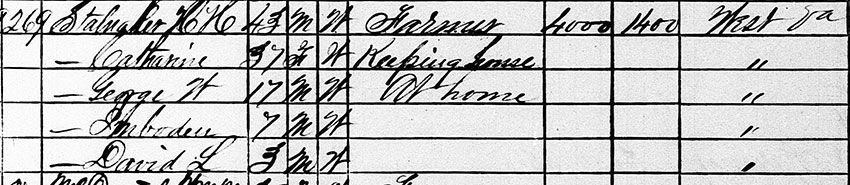 269 Stalnaker H H 43 M W Farmer 4000 1400 West Va
— Catharine 37 F W Keeping house "
— George W 17 M W At home "
— Imboden 7 M W "
— David L 3 M W "